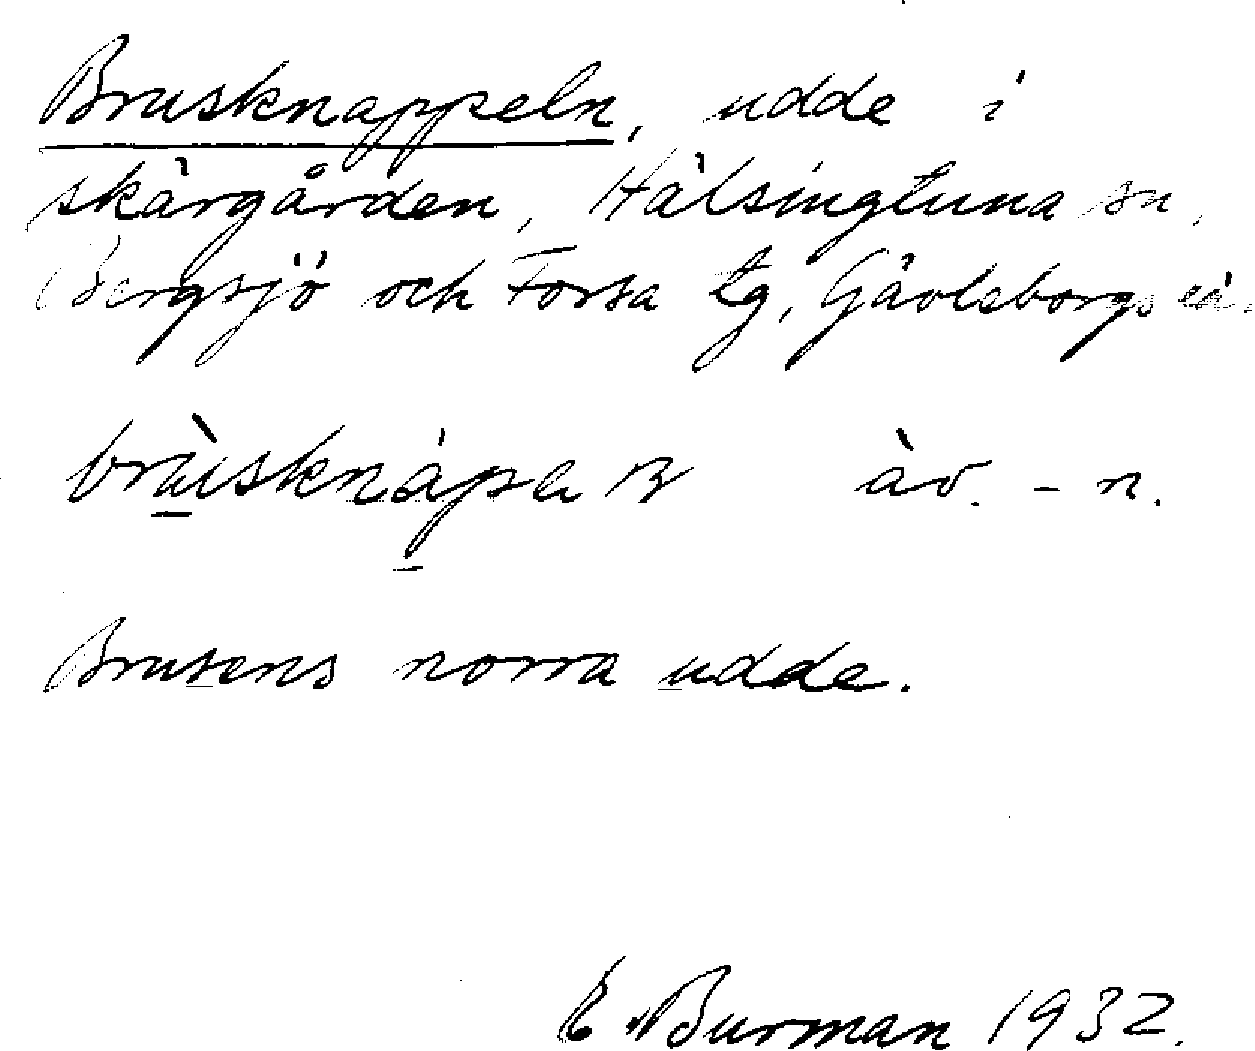 Brusknappeln, udde i
skärgården, Hälsingtuna sn,
Bergsjö och Forsa tg, Gävleborgs
av. - n.
Brusens norra udde.
E Burman 1932.